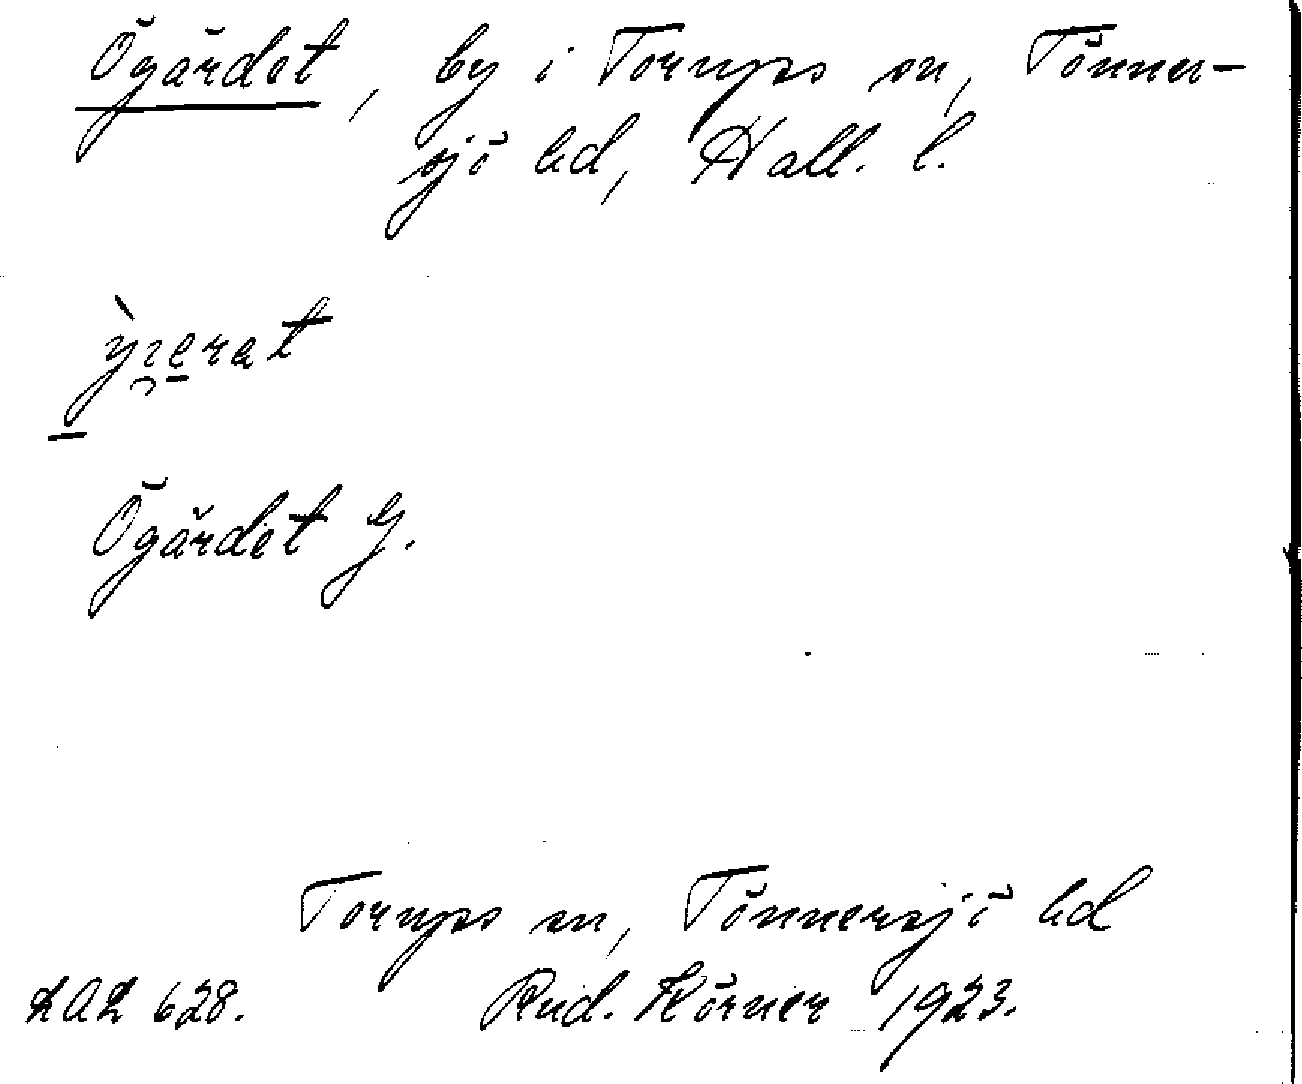 Ögärdet, by i Torups sn, Tönner-
sjö hd, Hall. l.
Ögärdet G.
Torups sn, Tönnersjö hd
LAL 628. Rud. Körner 1923.